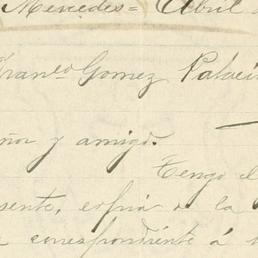 Mercedes = Abril
Franco Gomez Palacio
y amigo.
Tengo el
sente, copia de la
correspondiente á